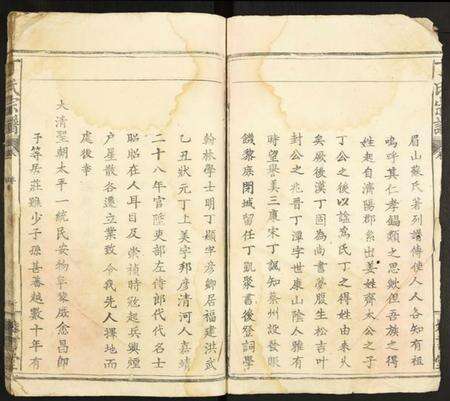 丁氏宗譜
眉山蘇氏著列譜傳使人人各知有祖
嗚呼其仁孝錫類之思歟但吾族之得
姓起自濟陽郡系出姜姓齊太公之子
丁公之後以諡為氏丁之得姓由來久
矣厥後漢丁固為尚書夢腹生松吉叶
封公之兆晉丁潭字世康山陰人雅有
時望譽美三康宋丁諷知蔡州設
饑黎疾閉城留任丁凱聚書後登詞學
翰林學士明丁顯字彥卿居福建洪武
乙丑狀元丁上美字邦彥清河人嘉靖
二十八年官陞吏部左侍郎代代名士
昭昭在人耳目及崇禎時寇起兵興煙
户星散各遷立業致令我先人擇地而
處後幸
大清聖朝太平一統民安物阜象成愈昌即
于等居莊雖少子孫甚蕃越數十年有
氏宗譜